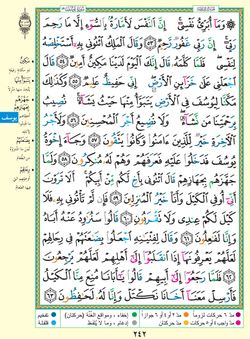 ۞ وَمَآ أُبَرِّئُ نَفْسِىٓ ۚ إِنَّ ٱلنَّفْسَ لَأَمَّارَةٌۢ بِٱلسُّوٓءِ إِلَّا مَا رَحِمَ
رَبِّىٓ ۚ إِنَّ رَبِّى غَفُورٌ رَّحِيمٌ ٥٣ وَقَالَ ٱلْمَلِكُ ٱئْتُونِى بِهِۦٓ أَسْتَخْلِصْهُ
لِنَفْسِى ۖ فَلَمَّا كَلَّمَهُۥ قَالَ إِنَّكَ ٱلْيَوْمَ لَدَيْنَا مَكِينٌ أَمِينٌ ٥٤ قَالَ
ٱجْعَلْنِى عَلَىٰ خَزَآئِنِ ٱلْأَرْضِ ۖ إِنِّى حَفِيظٌ عَلِيمٌ ٥٥ وَكَذَٰلِكَ
مَكَّنَّا لِيُوسُفَ فِى ٱلْأَرْضِ يَتَبَوَّأُ مِنْهَا حَيْثُ يَشَآءُ ۚ نُصِيبُ
بِرَحْمَتِنَا مَن نَّشَآءُ ۖ وَلَا نُضِيعُ أَجْرَ ٱلْمُحْسِنِينَ ٥٦ وَلَأَجْرُ
ٱلْءَاخِرَةِ خَيْرٌ لِّلَّذِينَ ءَامَنُوا۟ وَكَانُوا۟ يَتَّقُونَ ٥٧ وَجَآءَ إِخْوَةُ
يُوسُفَ فَدَخَلُوا۟ عَلَيْهِ فَعَرَفَهُمْ وَهُمْ لَهُۥ مُنكِرُونَ ٥٨ وَلَمَّا
جَهَّزَهُم بِجَهَازِهِمْ قَالَ ٱئْتُونِى بِأَخٍ لَّكُم مِّنْ أَبِيكُمْ ۚ أَلَا تَرَوْنَ
أَنِّىٓ أُوفِى ٱلْكَيْلَ وَأَنَا۠ خَيْرُ ٱلْمُنزِلِينَ ٥٩ فَإِن لَّمْ تَأْتُونِى بِهِۦ فَلَا
كَيْلَ لَكُمْ عِندِى وَلَا تَقْرَبُونِ ٦٠ قَالُوا۟ سَنُرَٰوِدُ عَنْهُ أَبَاهُ
وَإِنَّا لَفَٰعِلُونَ ٦١ وَقَالَ لِفِتْيَٰنِهِ ٱجْعَلُوا۟ بِضَٰعَتَهُمْ فِى رِحَالِهِمْ
لَعَلَّهُمْ يَعْرِفُونَهَآ إِذَا ٱنقَلَبُوٓا۟ إِلَىٰٓ أَهْلِهِمْ لَعَلَّهُمْ يَرْجِعُونَ
٦٢ فَلَمَّا رَجَعُوٓا۟ إِلَىٰٓ أَبِيهِمْ قَالُوا۟ يَٰٓأَبَانَا مُنِعَ مِنَّا ٱلْكَيْلُ
فَأَرْسِلْ مَعَنَآ أَخَانَا نَكْتَلْ وَإِنَّا لَهُۥ لَحَٰفِظُونَ ٦٣
يوسف
٢٤٢